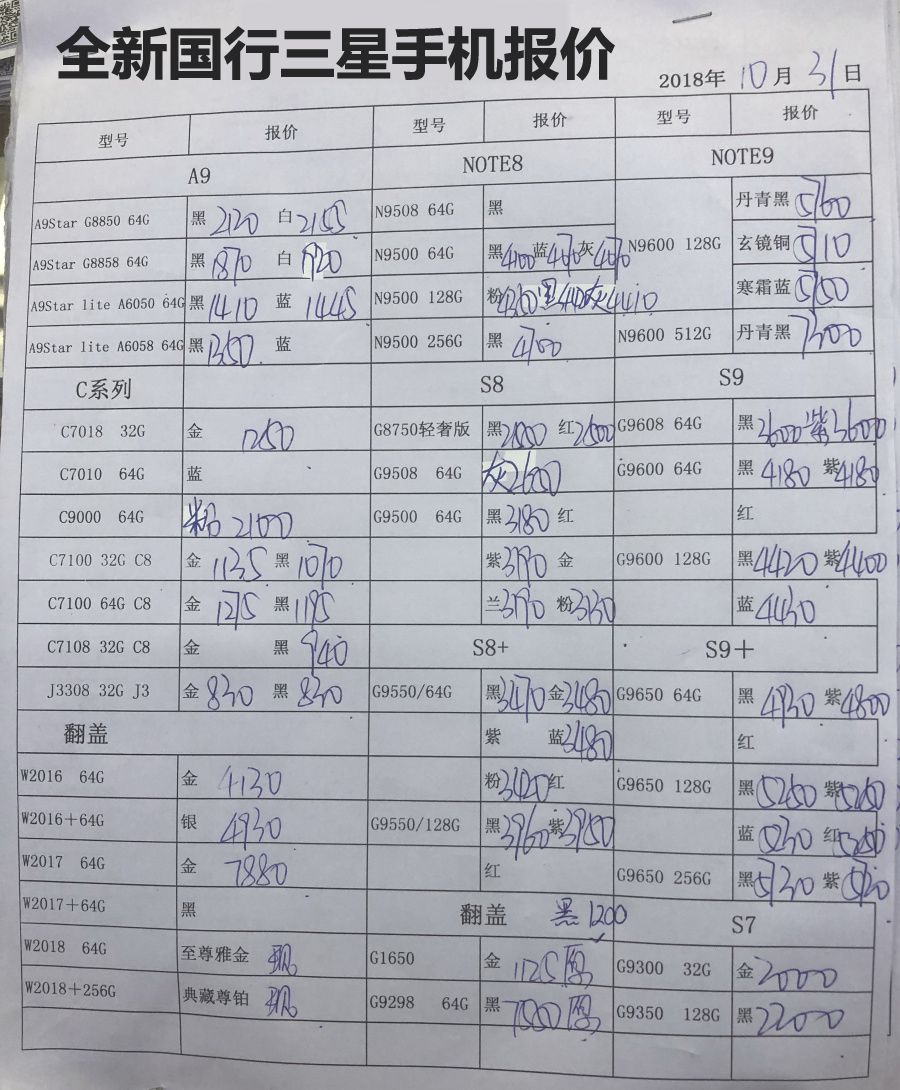 全新国行三星手机报价
2018年 10月 31日
型号 报价 型号 报价 型号 报价
A9 NOTE8 NOTE9
A9Star G8850 64G 黑 2120 白 2155 N9508 64G 黑 N9600 128G 丹青黑 5760
A9Star G8858 64G 黑 1870 白 1920 N9500 64G 黑 4100 蓝 4070 灰 4070 玄镜铜 5710
A9Star lite A6050 64G 黑 1410 蓝 1445 N9500 128G 粉 4360 黑 4410 灰 4410 寒霜蓝
A9Star lite A6058 64G 黑 1350 蓝 N9500 256G 黑 4700 N9600 512G 丹青黑 7300
C系列 S8 S9
C7018 32G 金 1250 G8750轻奢版 黑 红 2500 G9608 64G 黑 3600 紫 3600
C7010 64G 蓝 G9508 64G 灰 2600 G9600 64G 黑 4180 紫 4180
C9000 64G 粉 2100 G9500 64G 黑 3180 红 红
C7100 32G C8 金 1135 黑 1070 紫 3190 金 G9600 128G 黑 4420 紫 4400
C7100 64G C8 金 1215 黑 1195 兰 3190 粉 3130 蓝 4430
C7108 32G C8 金 黑 940 S8+ S9+
J3308 32G J3 金 830 黑 830 G9550/64G 黑 3470 金 3480 G9650 64G 黑 4930 紫 4800
翻盖 紫 蓝 3480 红
W2016 64G 金 4130 粉 3420 红 G9650 128G 黑 5250 紫 5250
W2016+64G 银 4930 G9550/128G 黑 3960 紫 3950 蓝 5230 红 5250
W2017 64G 金 7880 红 G9650 256G 黑 5730 紫
W2017+64G 黑 翻盖 黑 1200 S7
W2018 64G 至尊雅金 现 G1650 金 1125 G9300 32G 金 2000
W2018+256G 典藏尊铂 现 G9298 64G 黑 G9350 128G 黑 2200